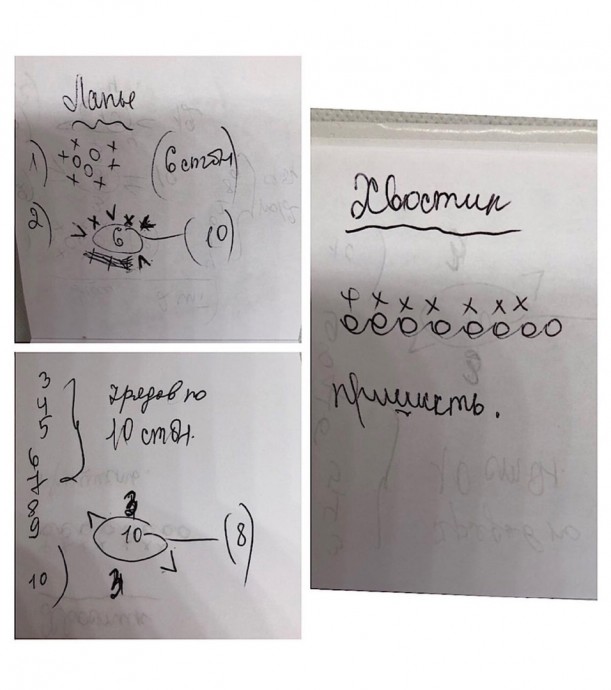 Лапы
1) (6 стбн)
2) 6 (10)
3
4
5
6
7
8
9
рядов по
10 стбн.
3
10) 10 (8)
3
Хвостик
пришить.